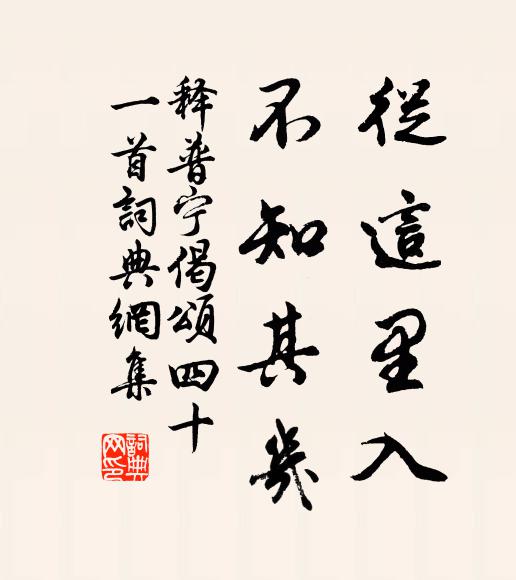 從這里入
不知其幾
释普宁偈頌四十
一首詞典網集
詞典
网印